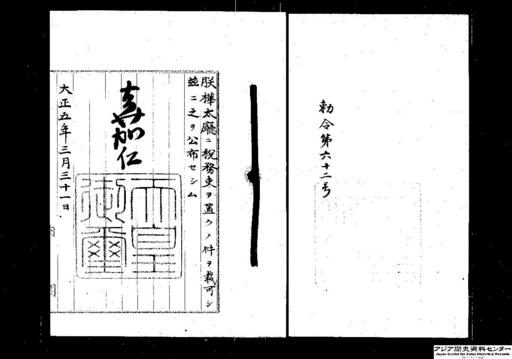 勅令第六十二号
朕樺太庁ニ税務吏ヲ置クノ件ヲ裁可シ
茲ニ之ヲ公布セシム
嘉仁
天皇
御璽
大正五年三月三十一日
アジア歴史資料センター
Japan Center for Asian Historical Records